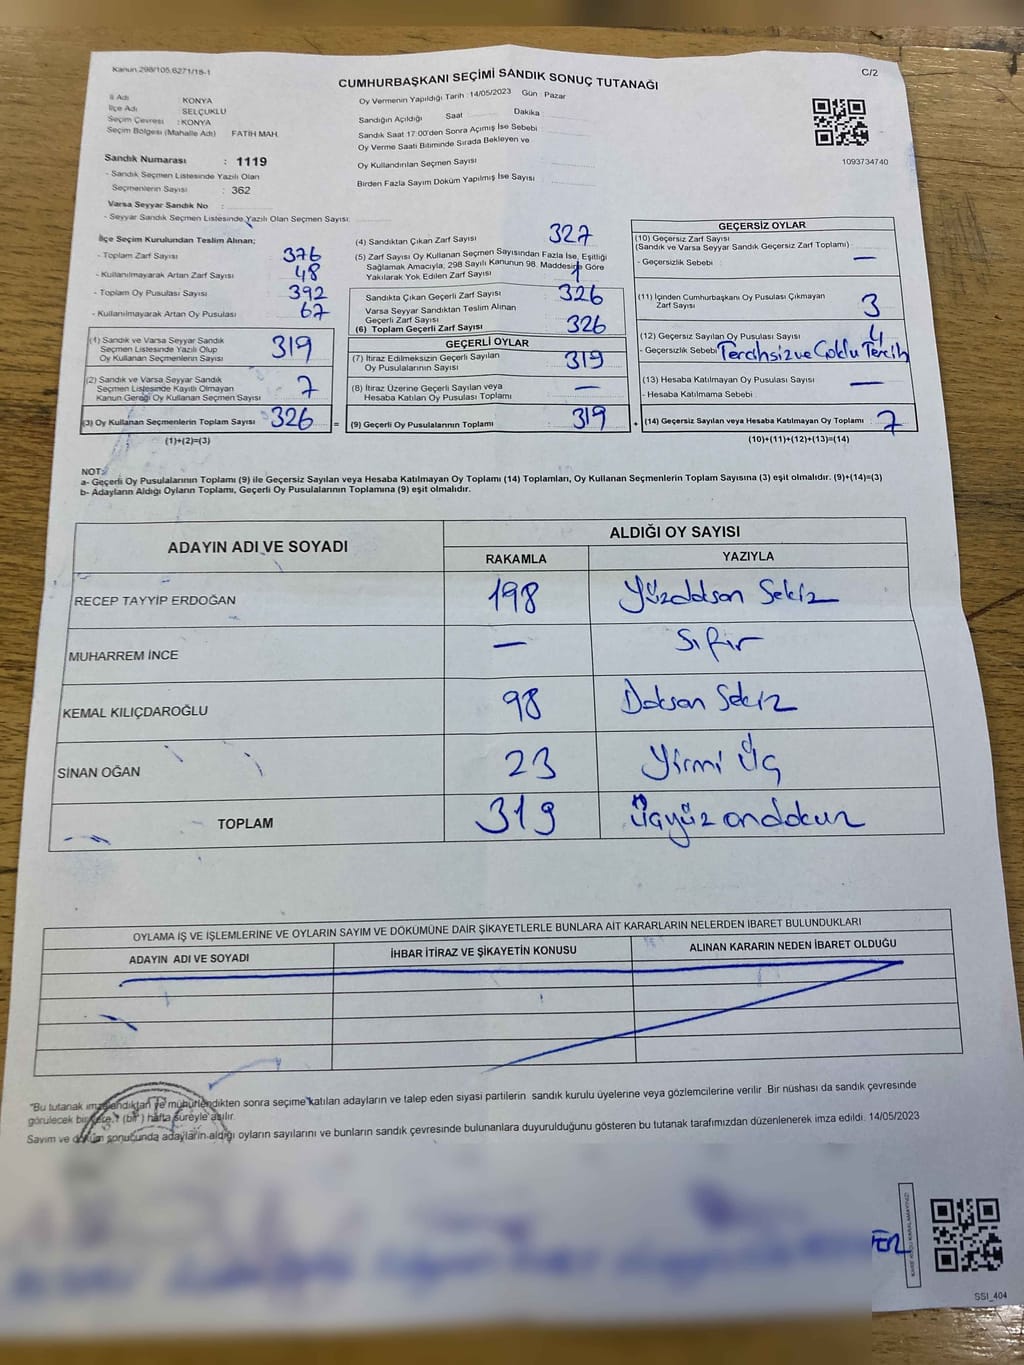 Kanun 298/105,6271/18-1
CUMHURBAŞKANI SEÇİMİ SANDIK SONUÇ TUTANAĞI
C/2
İl Adı KONYA
İlçe Adı SELÇUKLU
Seçim Çevresi : KONYA
Seçim Bölgesi (Mahalle Adı) FATİH MAH.
Sandık Numarası : 1119
- Sandık Seçmen Listesinde Yazılı Olan
Seçmenlerin Sayısı : 362
Varsa Seyyar Sandık No :
- Seyyar Sandık Seçmen Listesinde Yazılı Olan Seçmen Sayısı:
Oy Vermenin Yapıldığı Tarih : 14/05/2023 Gün : Pazar
Sandığın Açıldığı Saat Dakika
Sandık Saat 17:00'den Sonra Açımış İse Sebebi
Oy Verme Saati Bitiminde Sırada Bekleyen ve
Oy Kullandırılan Seçmen Sayısı
Birden Fazla Sayım Döküm Yapılmış İse Sayısı
1093734740
İlçe Seçim Kurulundan Teslim Alınan;
- Toplam Zarf Sayısı 376
- Kullanılmayarak Artan Zarf Sayısı 48
- Toplam Oy Pusulası Sayısı 392
- Kullanılmayarak Artan Oy Pusulası 67
(1) Sandık ve Varsa Seyyar Sandık
Seçmen Listesinde Yazılı Olup
Oy Kullanan Seçmenlerin Sayısı 319
(2) Sandık ve Varsa Seyyar Sandık
Seçmen Listesinde Kayıtlı Olmayan
Kanun Gereği Oy Kullanan Seçmen Sayısı 7
(3) Oy Kullanan Seçmenlerin Toplam Sayısı 326
(1)+(2)=(3)
(4) Sandıktan Çıkan Zarf Sayısı 327
(5) Zarf Sayısı Oy Kullanan Seçmen Sayısından Fazla İse, Eşitliği
Sağlamak Amacıyla, 298 Sayılı Kanunun 98. Maddesine Göre
Yakılarak Yok Edilen Zarf Sayısı 1
Sandıkta Çıkan Geçerli Zarf Sayısı 326
Varsa Seyyar Sandıktan Teslim Alınan
Geçerli Zarf Sayısı
(6) Toplam Geçerli Zarf Sayısı 326
GEÇERLİ OYLAR
(7) İtiraz Edilmeksizin Geçerli Sayılan
Oy Pusulalarının Sayısı 319
(8) İtiraz Üzerine Geçerli Sayılan veya
Hesaba Katılan Oy Pusulası Toplamı —
= (9) Geçerli Oy Pusulalarının Toplamı 319
GEÇERSİZ OYLAR
(10) Geçersiz Zarf Sayısı
(Sandık ve Varsa Seyyar Sandık Geçersiz Zarf Toplamı) —
- Geçersizlik Sebebi
(11) İçinden Cumhurbaşkanı Oy Pusulası Çıkmayan
Zarf Sayısı 3
(12) Geçersiz Sayılan Oy Pusulası Sayısı 4
- Geçersizlik Sebebi Tercihsiz ve Çoklu Tercih
(13) Hesaba Katılmayan Oy Pusulası Sayısı —
- Hesaba Katılmama Sebebi
+ (14) Geçersiz Sayılan veya Hesaba Katılmayan Oy Toplamı 7
(10)+(11)+(12)+(13)=(14)
NOT:
a- Geçerli Oy Pusulalarının Toplamı (9) ile Geçersiz Sayılan veya Hesaba Katılmayan Oy Toplamı (14) Toplamları, Oy Kullanan Seçmenlerin Toplam Sayısına (3) eşit olmalıdır. (9)+(14)=(3)
b- Adayların Aldığı Oyların Toplamı, Geçerli Oy Pusulalarının Toplamına (9) eşit olmalıdır.
ADAYIN ADI VE SOYADI
ALDIĞI OY SAYISI
RAKAMLA YAZIYLA
RECEP TAYYİP ERDOĞAN 198 Yüzdoksan Sekiz
MUHARREM İNCE — Sıfır
KEMAL KILIÇDAROĞLU 98 Doksan Sekiz
SİNAN OĞAN 23 Yirmi Üç
TOPLAM 319 Üçyüz ondokuz
OYLAMA İŞ VE İŞLEMLERİNE VE OYLARIN SAYIM VE DÖKÜMÜNE DAİR ŞİKAYETLERLE BUNLARA AİT KARARLARIN NELERDEN İBARET BULUNDUKLARI
ADAYIN ADI VE SOYADI İHBAR İTİRAZ VE ŞİKAYETİN KONUSU ALINAN KARARIN NEDEN İBARET OLDUĞU
"Bu tutanak imzalandıktan ve mühürlendikten sonra seçime katılan adayların ve talep eden siyasi partilerin sandık kurulu üyelerine veya gözlemcilerine verilir. Bir nüshası da sandık çevresinde
görülecek bir yere 1 (bir) hafta süreyle asılır.
Sayım ve döküm sonucunda adayların aldığı oyların sayılarını ve bunların sandık çevresinde bulunanlara duyurulduğunu gösteren bu tutanak tarafımızdan düzenlenerek imza edildi. 14/05/2023
SSI_404